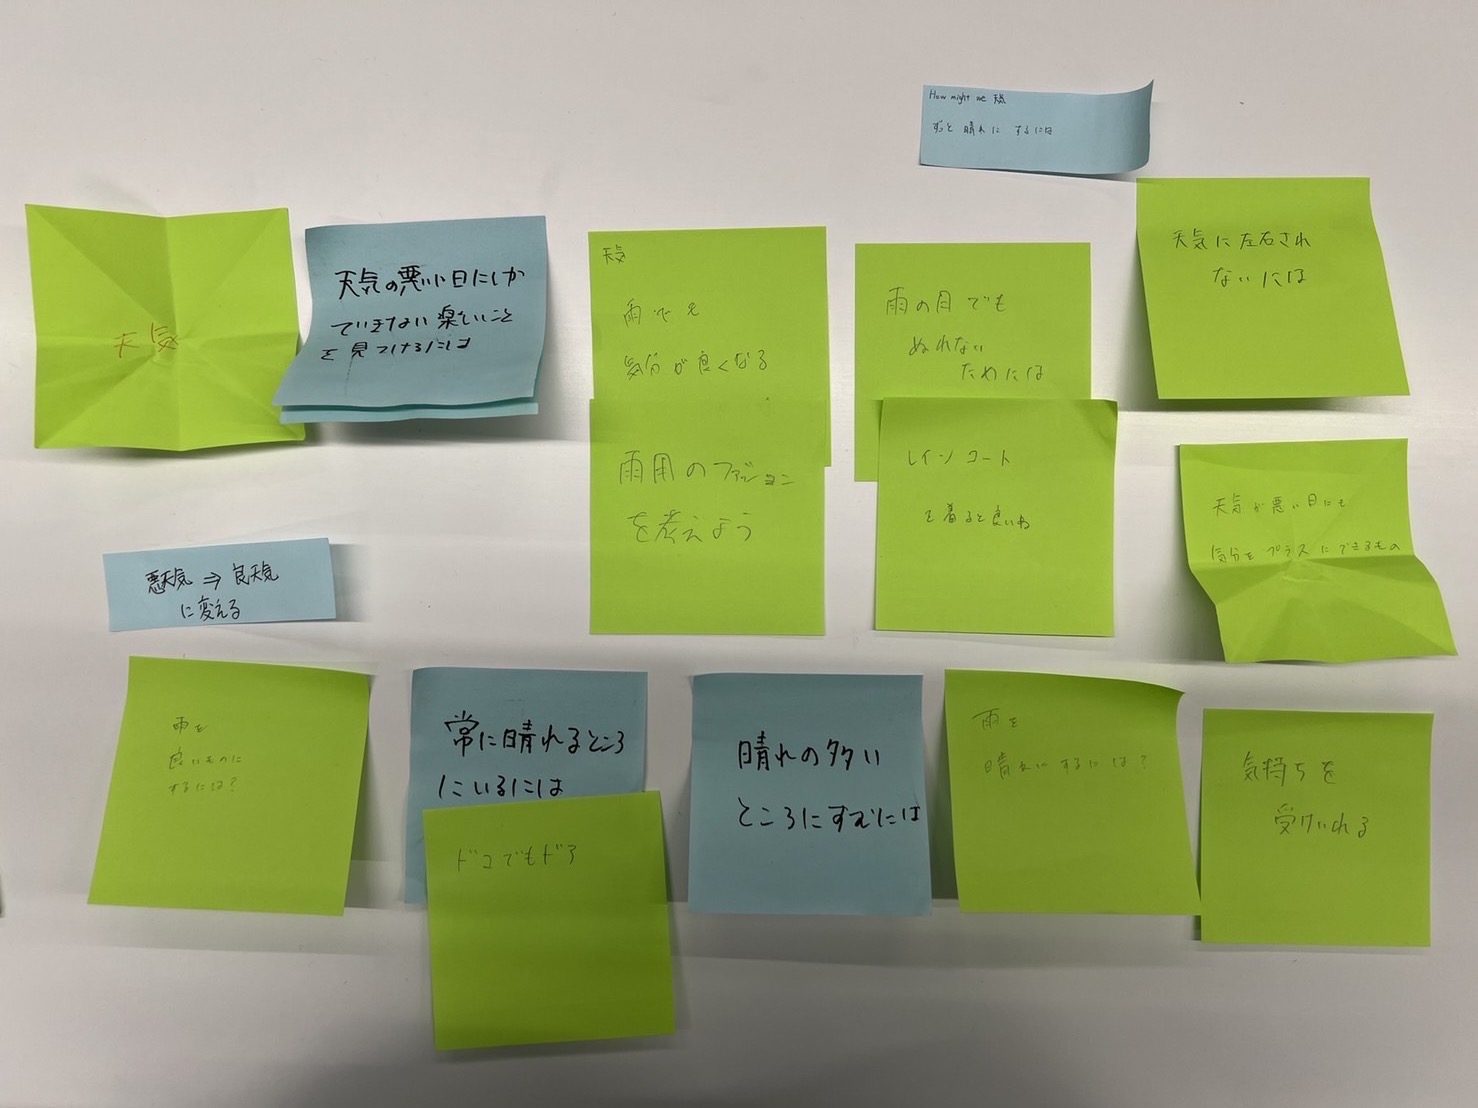 How might we 天気
ずっと晴れにするには
天気
天気の悪い日にしか
できない楽しいこと
を見つけるには
天気
雨でも
気分が良くなる
雨用のファッション
を考えよう
雨の日でも
ぬれない
ためには
レインコート
を着ると良いね
天気に左右され
ないには
天気が悪い日にも
気分をプラスにできるもの
悪天気⇒良天気
に変える
雨を
良いものに
するには?
常に晴れるところ
にいるには
ドコでもドア
晴れの多い
ところにすむには
雨を
晴れにするには?
気持ちを
受けいれる